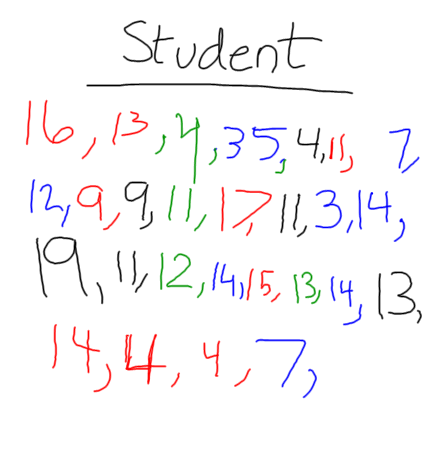 Student
16, 13, 4, 35, 4, 11, 7,
12, 9, 9, 11, 17, 11, 3, 14,
19, 11, 12, 14, 15, 13, 14, 13,
14, 4, 4, 7,